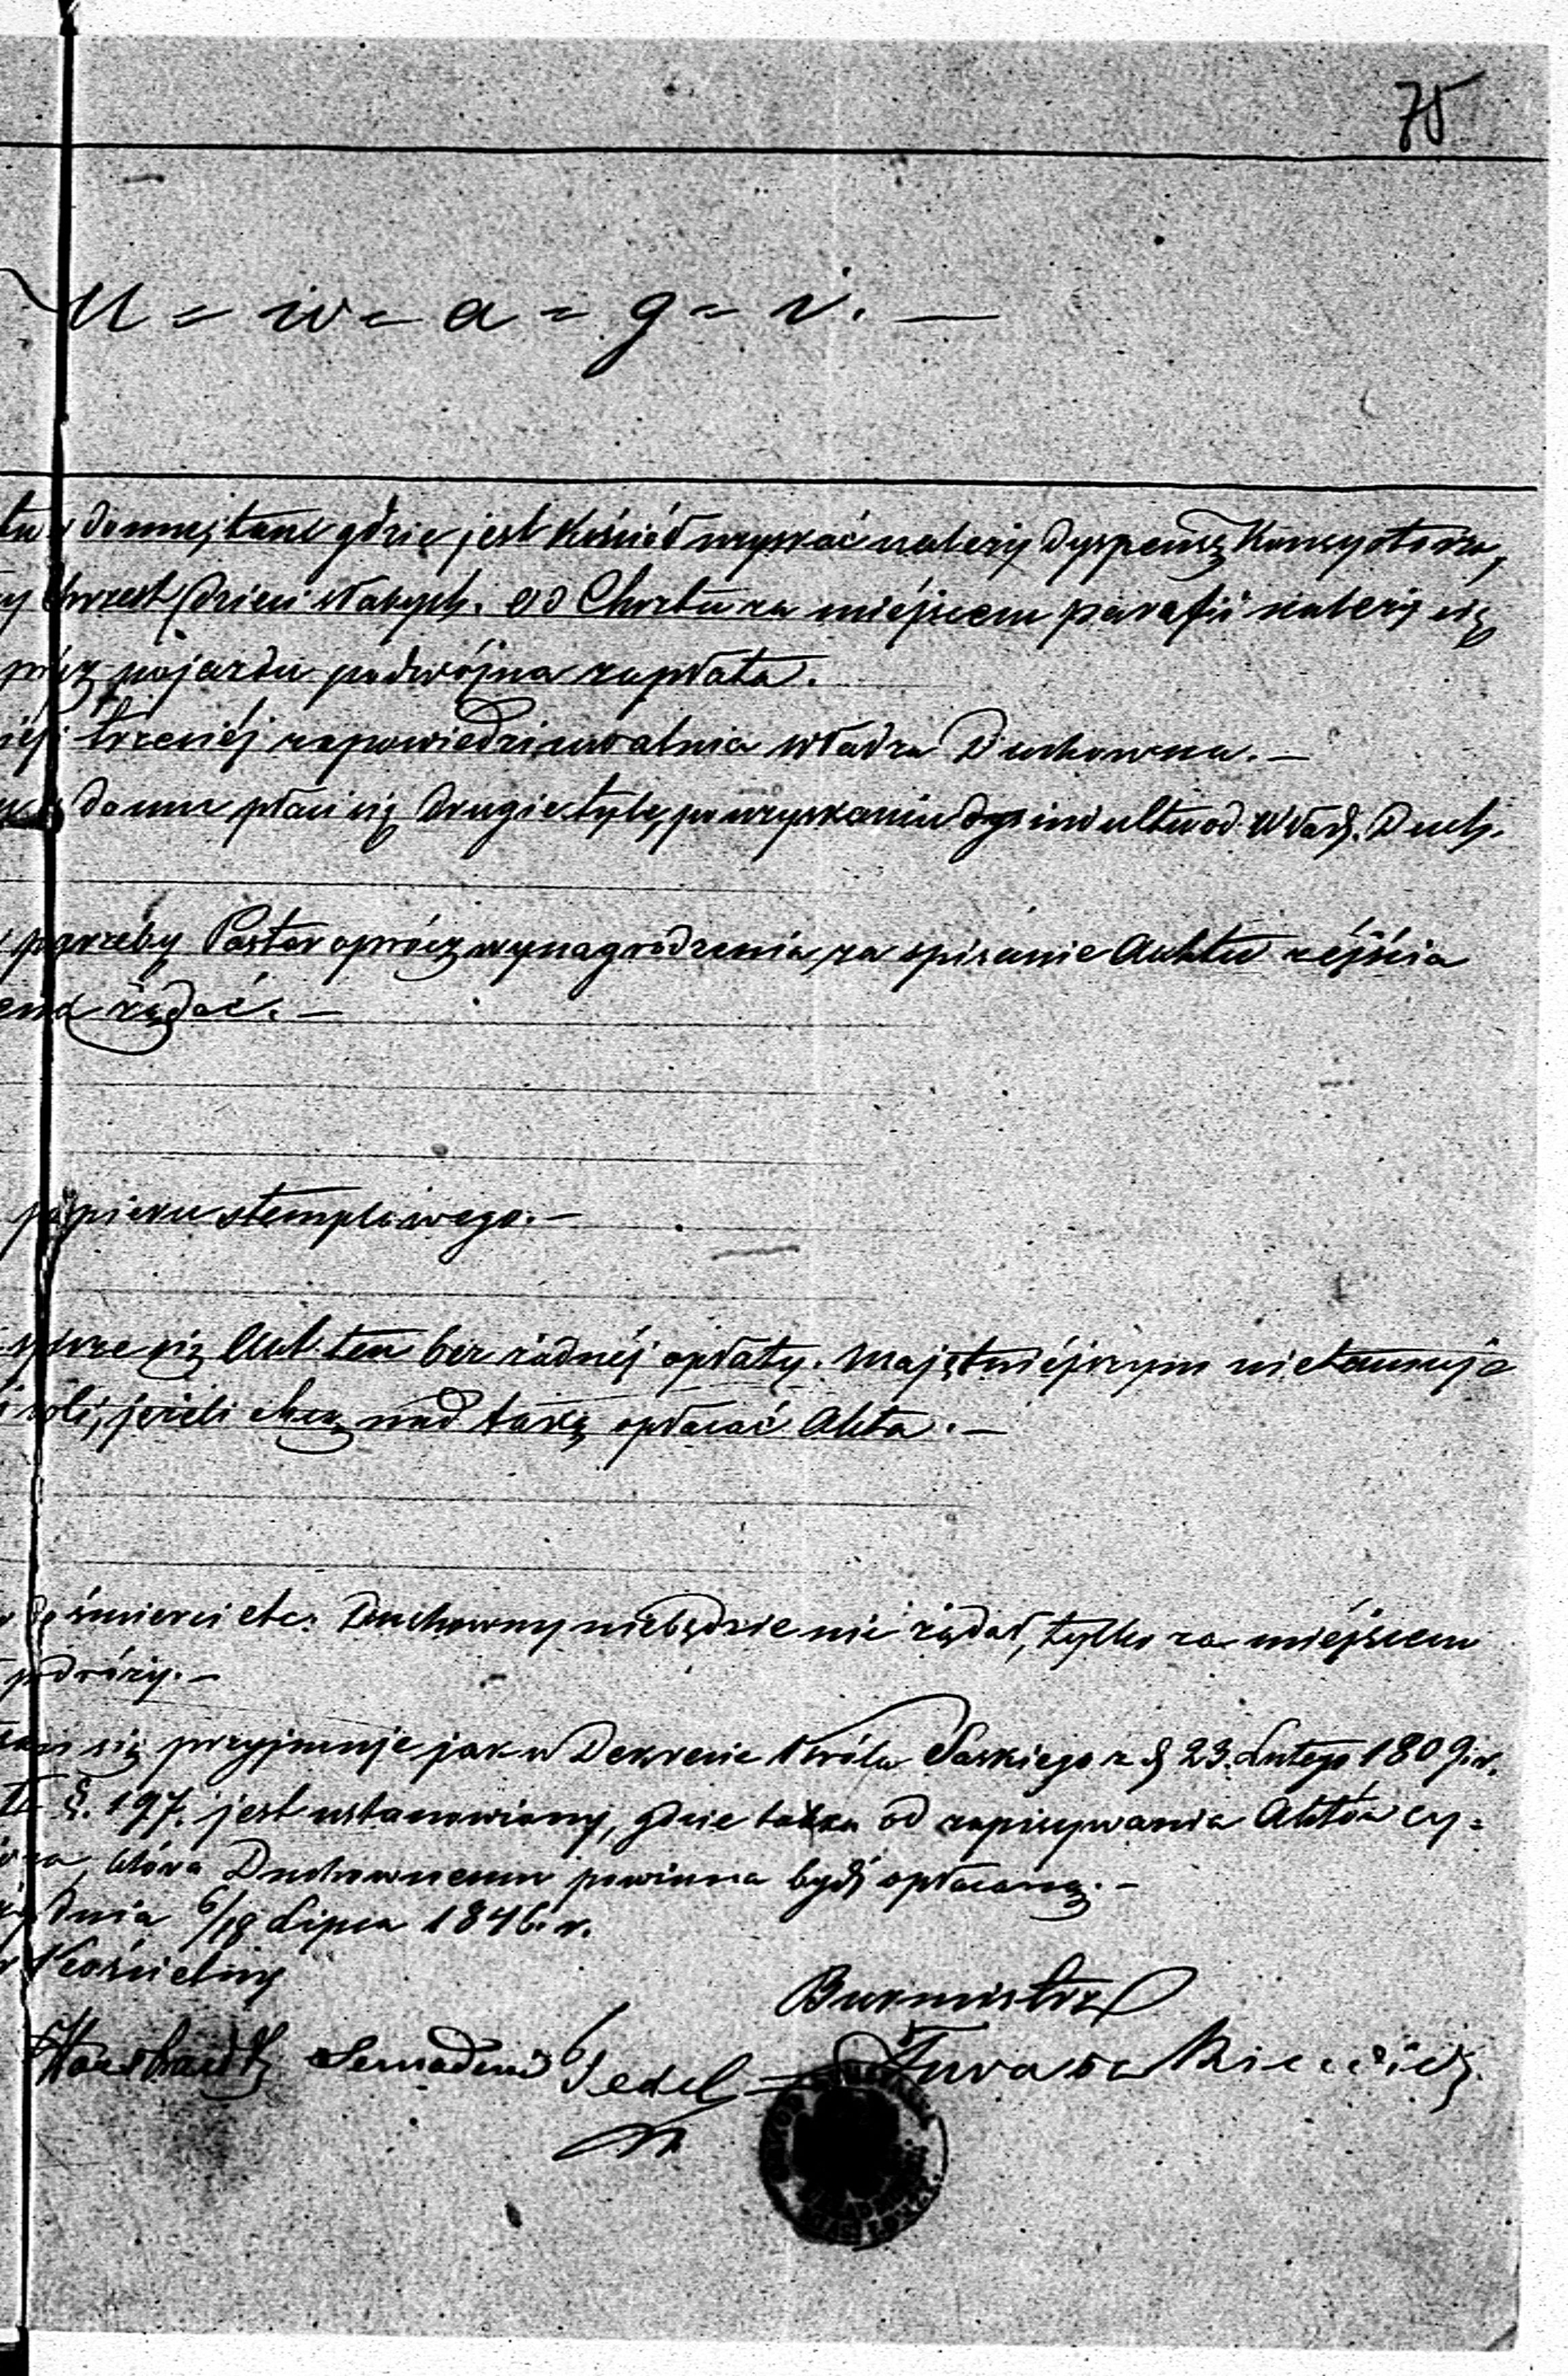 75
U = w = a = g = i. —
domu, tam gdzie jest Kościół uzyskać należy dyspensę Konsystorza,
chrzest dzieci słabych. Od Chrztu za miejscem parafii należy się
pojazdu podwójna zapłata.
trzeciéj zapowiedzi uwalnia władza Duchowna. —
domu płaci się drugie tyle, po uzyskaniu indultu od Wład. Duch.
pogrzeby Pastor oprócz wynagrodzenia za spisanie Aktu zéjścia
żądać. —
papieru stemplowego. —
się Akt ten bez żadnéj opłaty. Majętniéjszym nie tamuje
woli, jeżeli chcą nad taxę opłacać Akta. —
śmierci etc. Duchowny niebędzie nic żądał, tylko za miéjscem
podróży. —
się przyjmuje jak w Dekrecie Króla Saskiego z d 23. Lutego 1809. r.
§. 197. jest ustanowiony, gdzie taxa od zapisywania Aktów cy=
która Duchownemu powinna bydź opłacaną. —
dnia 6/18 Lipca 1846. r.
Kościelny
Burmistrz
Semadeni Sedel